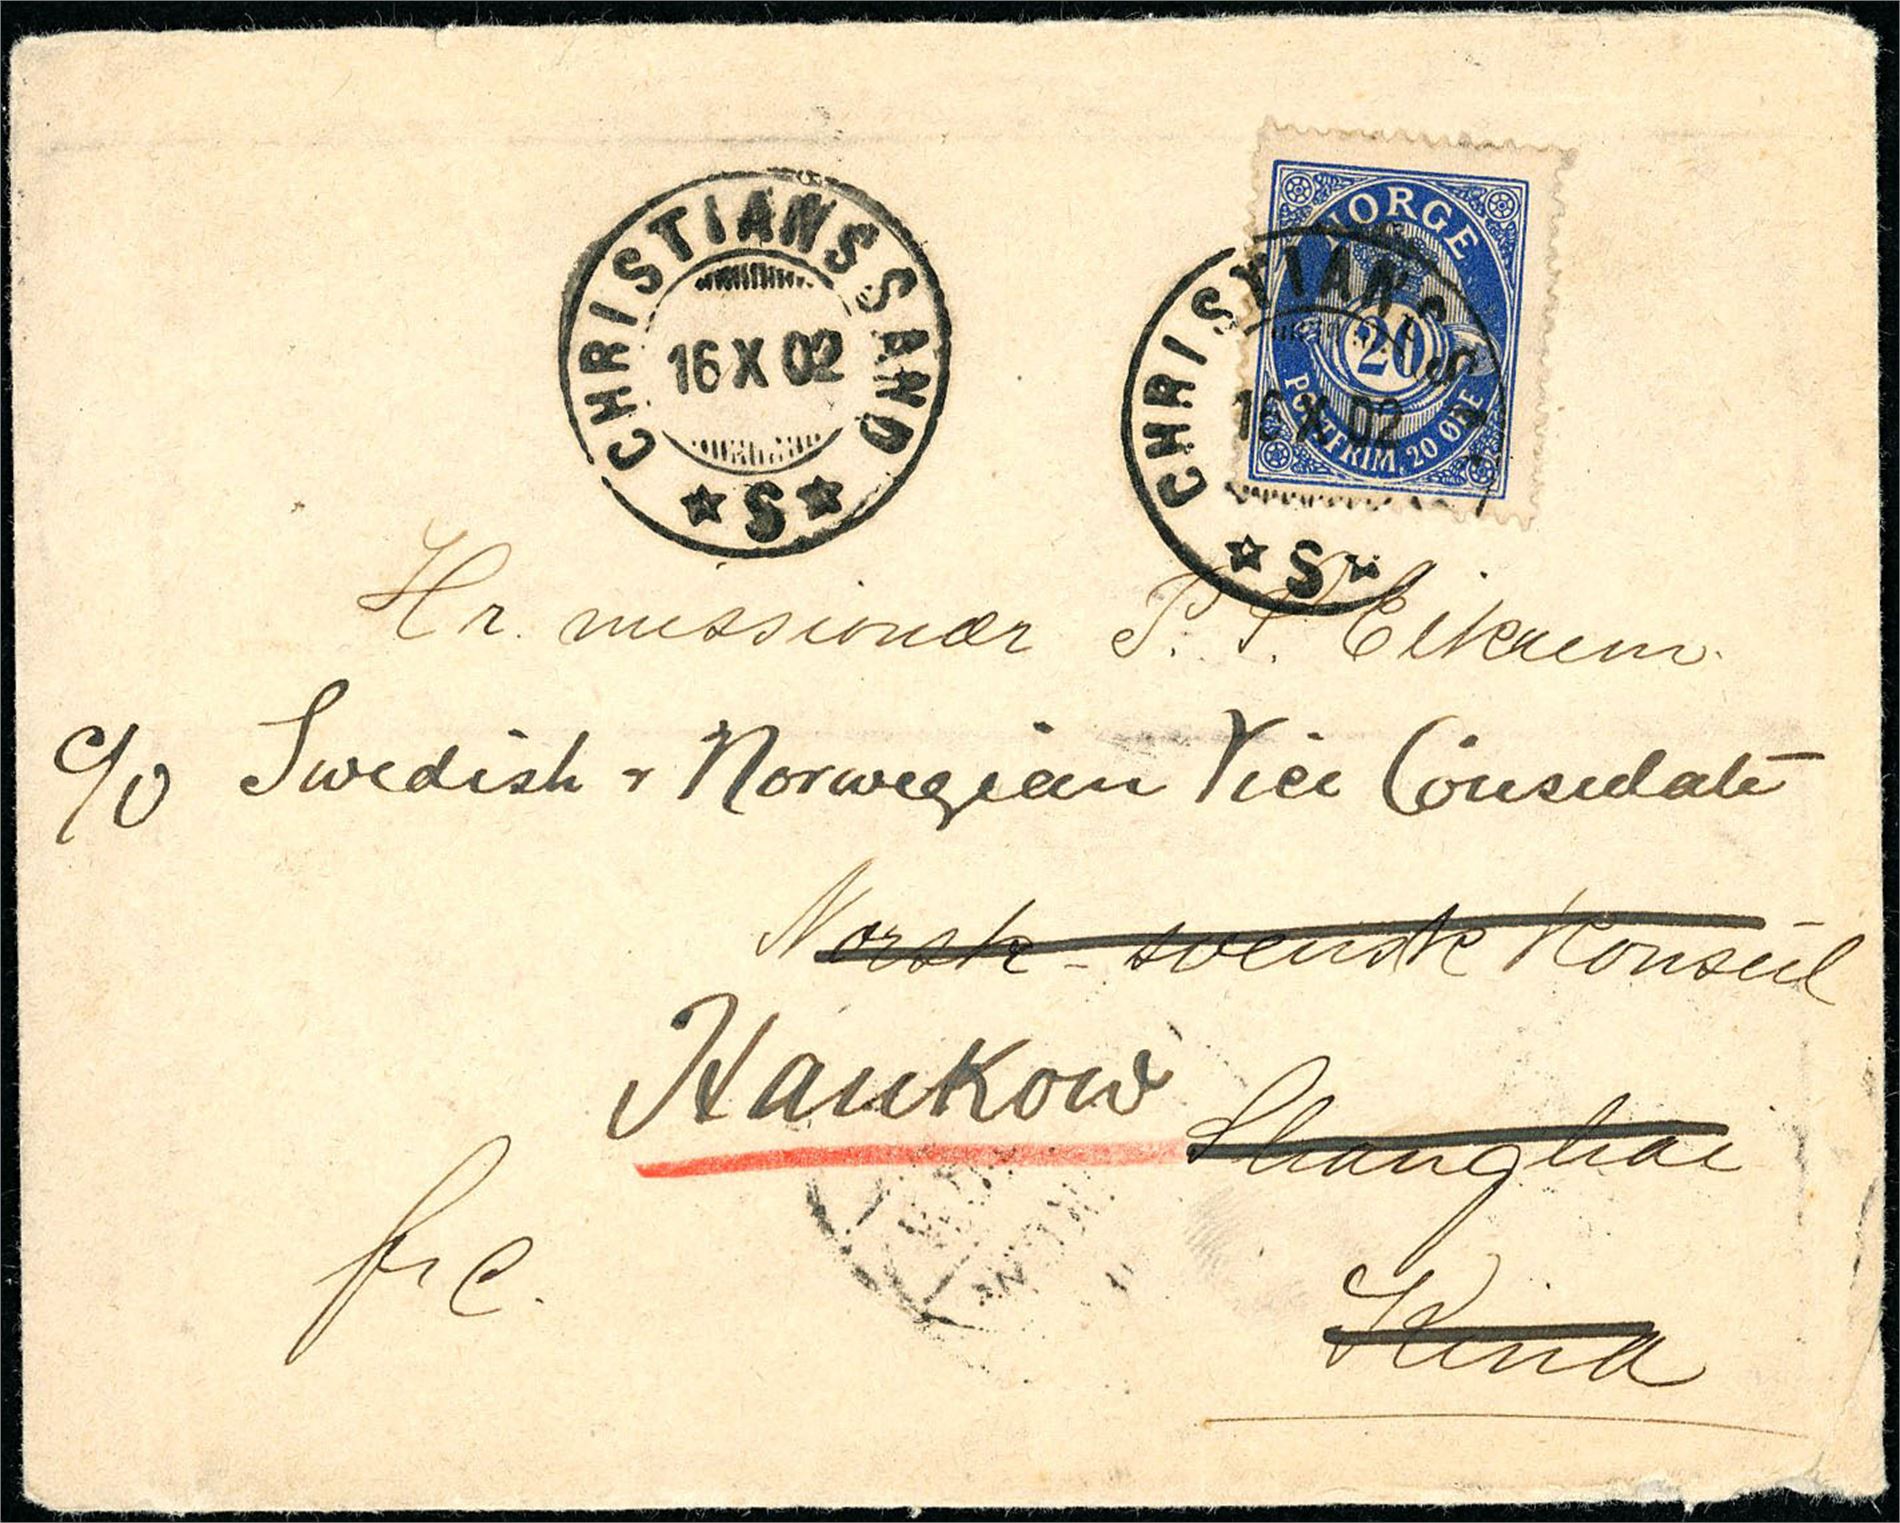 CHRISTIANSSAND
16 X 02
★ S ★
NORGE
20
POSTFRIM. 20 ØRE
CHRISTIANSS
16 X 02
★ S ★
Hr. missionær P. P. Eikrem.
c/o Swedish & Norwegian Vice Consulate
Norsk-svensk Konsul
Hankow
Shanghai
frc.
Kina